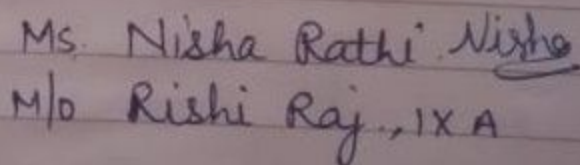 Ms. Nisha Rathi Nisha
M/o Rishi Raj., IX A